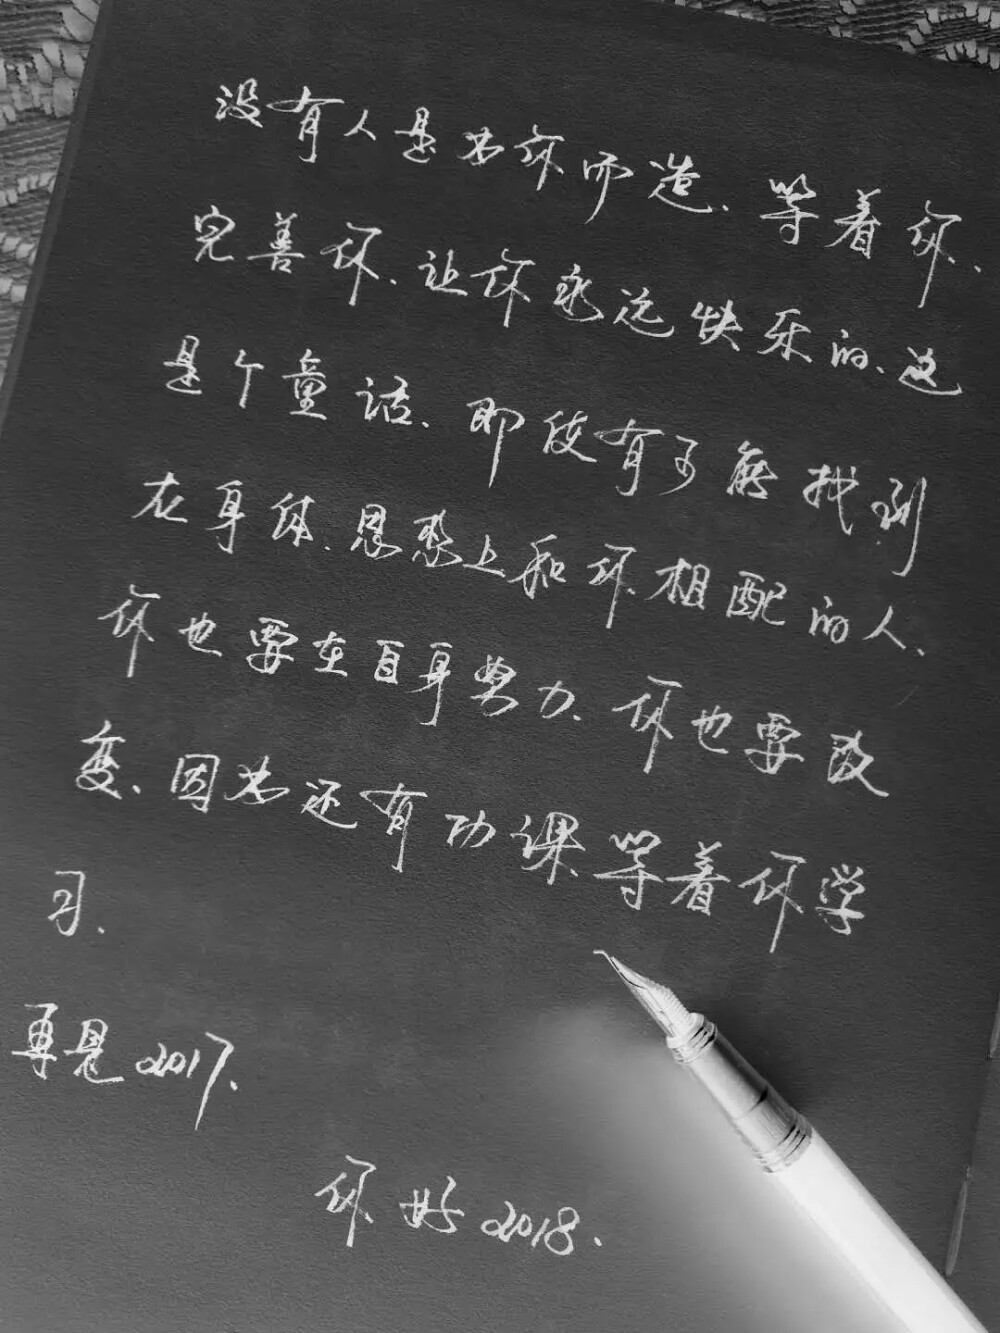 没有人是为你而造、等着你、
完善你、让你永远快乐的、这
是个童话、即使有了能找到
在身体、思想上和你相配的人、
你也要在自身努力、你也要改
变、因为还有功课等着你学
习.
再见2017.
你好2018.